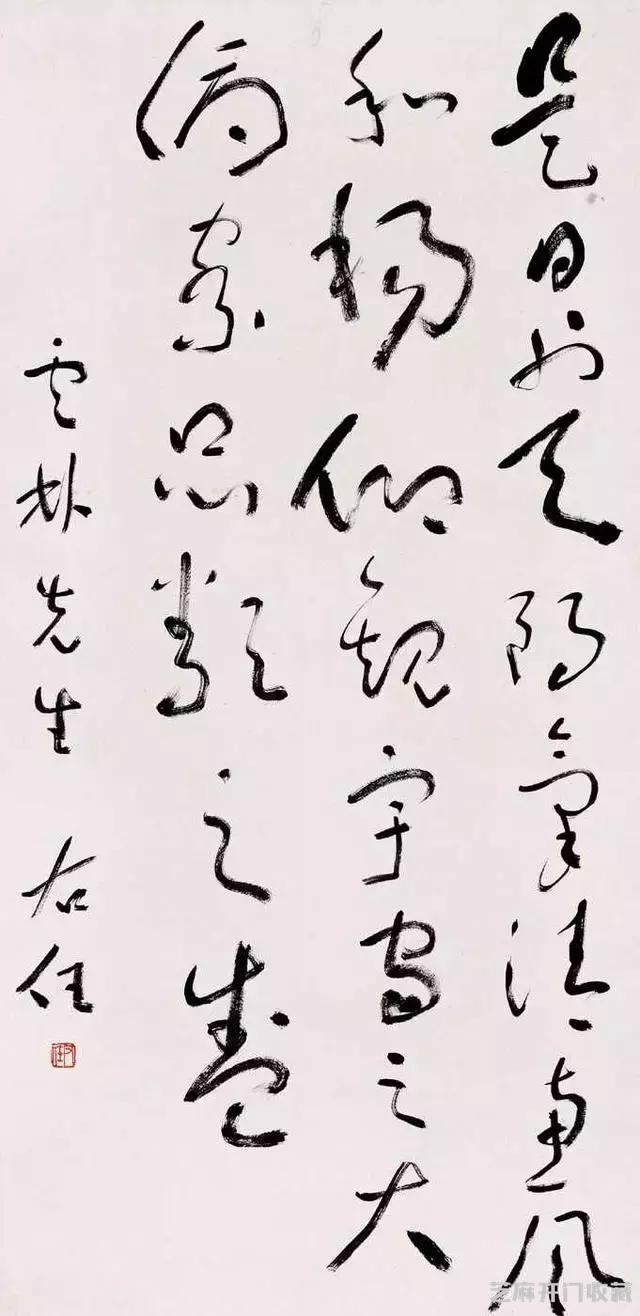 是日也天朗氣清惠風
和暢仰觀宇宙之大
俯察品類之盛
雲林先生 右任
芝麻开门收藏